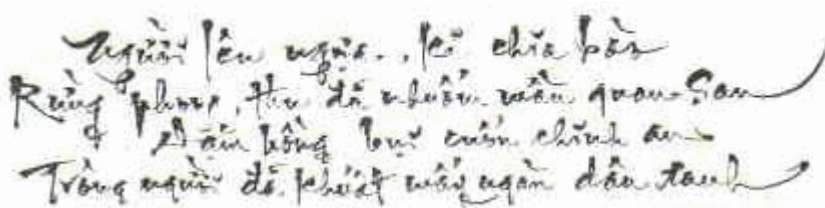 Người lên ngựa.. kẻ chia bào
Rừng phong, thu đã nhuốm màu quan san
Dặm hồng bụi cuốn chinh an
Trông người đã khuất mấy ngàn dâu xanh